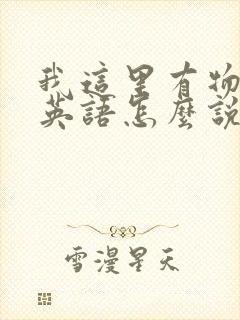 我這里有物
英語怎麼說
雪漫星天